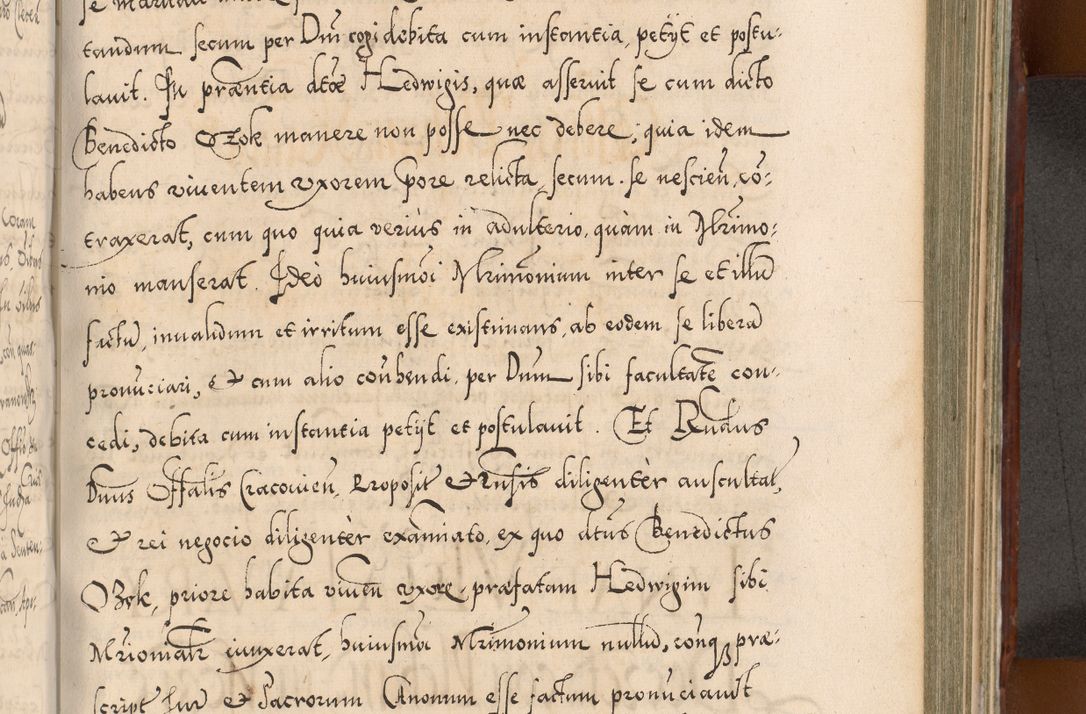 tandum secum per Dnū cogi debita cum instantia, petÿt et postu-
lauit. In præntia dtæ Hedwigis, quæ asseruit se cum dicto
Benedicto OZok manere non posse nec debere, quia idem
habens viuentem vxorem pore relicta, secum se nescien, cō-
traxerat, cum quo quia veriùs in adulterio, quàm in Mrimo-
nio manserat. Ideo huiusmōi Mrimonium inter se et illū
factū, inualidum et irritum esse existimans, ab eodem se liberā
pronūciari, et cum alio conhendi, per Dnum sibi facultatē con-
cedi, debita cum instantia petÿt et postulauit. Et Rndus
Dnus Offalis Cracouien, Proposit et Rnsis diligentèr auscultat,
et rei negocio diligentèr examinato, ex quo dtus Benedictus
OZok, priore habita viuen vxore, præfatam Hedwigim sibi
Mriomalr iunxerat, huiusmōi Mrimonium nullū, conq præ-
script Iur et Sacrorum Canonum esse factum pronūciauit